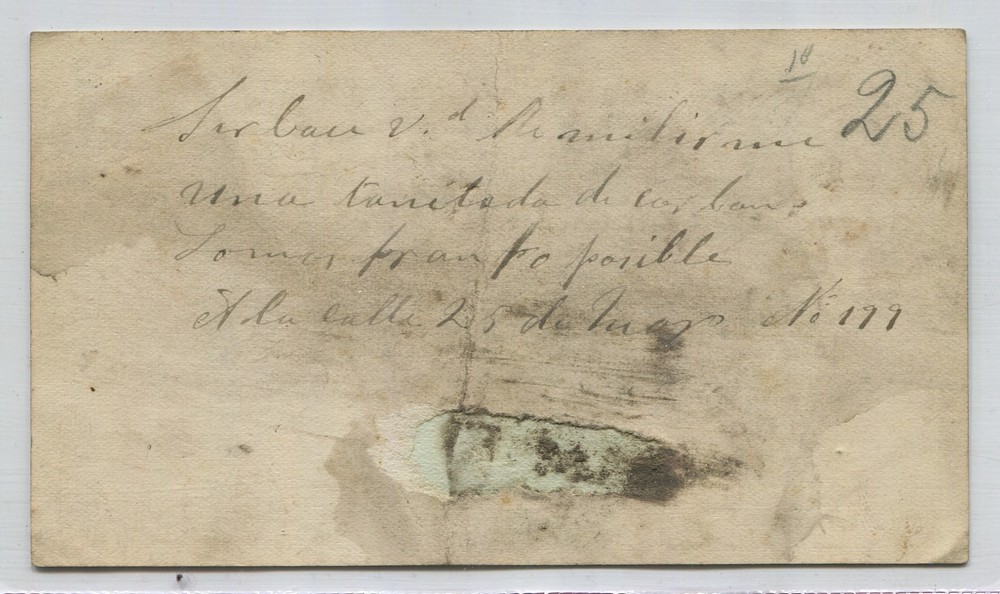 10
25
Serbase V.d Remitirme
una tonitada de carbon
Lo mas pronto posible
A la calle 25 de Mayo No 199